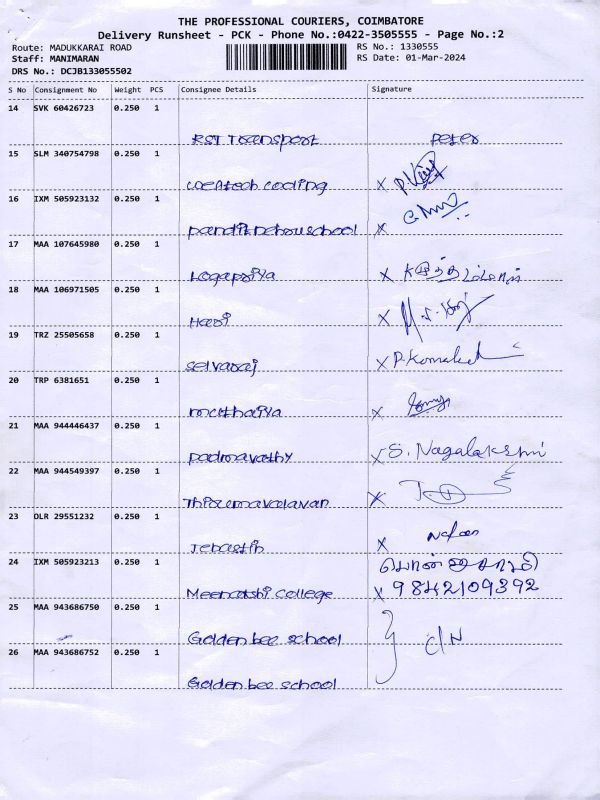 THE PROFESSIONAL COURIERS, COIMBATORE
Delivery Runsheet - PCK - Phone No.:0422-3505555 - Page No.:2
Route: MADUKKARAI ROAD RS No.: 1330555
Staff: MANIMARAN RS Date: 01-Mar-2024
DRS No.: DCJB133055502
S No Consignment No Weight PCS Consignee Details Signature
14 SVK 60426723 0.250 1
RST Transport Peter
15 SLM 340754798 0.250 1
cooling X
16 IXM 505923132 0.250 1
school X
17 MAA 107645980 0.250 1
Logapriya X
18 MAA 106971505 0.250 1
Hari X
19 TRZ 25505658 0.250 1
Selvaraj X
20 TRP 6381651 0.250 1
muthaiya X
21 MAA 944446437 0.250 1
Padmavathy X S. Nagalakshmi
22 MAA 944549397 0.250 1
Thirumavalavan X
23 DLR 29551232 0.250 1
Jebastin X
24 IXM 505923213 0.250 1
Meenakshi College X 9842109392
25 MAA 943686750 0.250 1
Golden bee school } C/N
26 MAA 943686752 0.250 1
Golden bee school